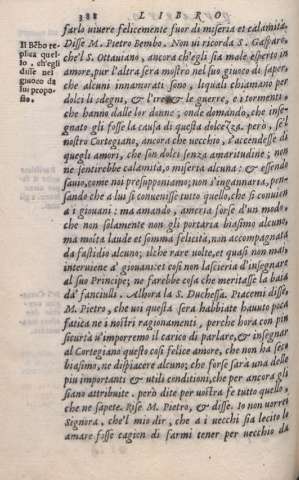 388 LIBRO
farlo uiuere felicemente fuor di miseria et calamità.
Il Bẽbo replica quello, ch'egli disse nel giuoco da lui proposto.
Disse M. Pietro Bembo. Non ui ricorda S. Gasparo,
che'l S. Ottauiano, ancora ch'egli sia mole esperto in
amore, pur l'altra sera mostrò nel suo giuoco di saper,
che alcuni innamorati sono, li quali chiamano per
dolci li sdegni, & l'ire & le guerre, e i tormenti,
che hanno dalle lor donne; onde domandò, che inse-
gnato gli fosse la causa di questa dolcezza. però, se'l
nostro Cortegiano, ancora che uecchio, s'accendesse di
quegli amori, che son dolci senza amaritudine; non
ne sentirebbe calamità, o miseria alcuna: & essendo
sauio, come noi presupponiamo; non s'ingannaria, pen-
sando che a lui si conuenisse tutto quello, che si conuien
a i giouani: ma amando, ameria forse d'un modo,
che non solamente non gli portaria biasimo alcuno,
ma molta laude et somma felicità, non accompagnata
da fastidio alcuno; ilche rare uolte, et quasi non mai
interuiene a' giouani: et cosi non lascieria d'insegnare
al suo Principe; ne farebbe cosa che meritasse la baia
da' fanciulli. Alhora la S. Duchessa. Piacemi disse,
M. Pietro, che uoi questa sera habbiate hauuto poca
fatica ne i nostri ragionamenti, perche hora con piu
sicurtà u'imporremo il carico di parlare, & insegnar
al Cortegiano questo cosi felice amore, che non ha seco
biasimo, ne dispiacere alcuno; che forse sarà una delle
piu importanti & utili conditioni, che per ancora gli
siano attribuite. però dite per uostra fe tutto quello,
che ne sapete. Rise M. Pietro, & disse. Io non uorrei
Signora, che'l mio dir, che a i uecchi sia lecito lo
amare fosse cagion di farmi tener per uecchio da